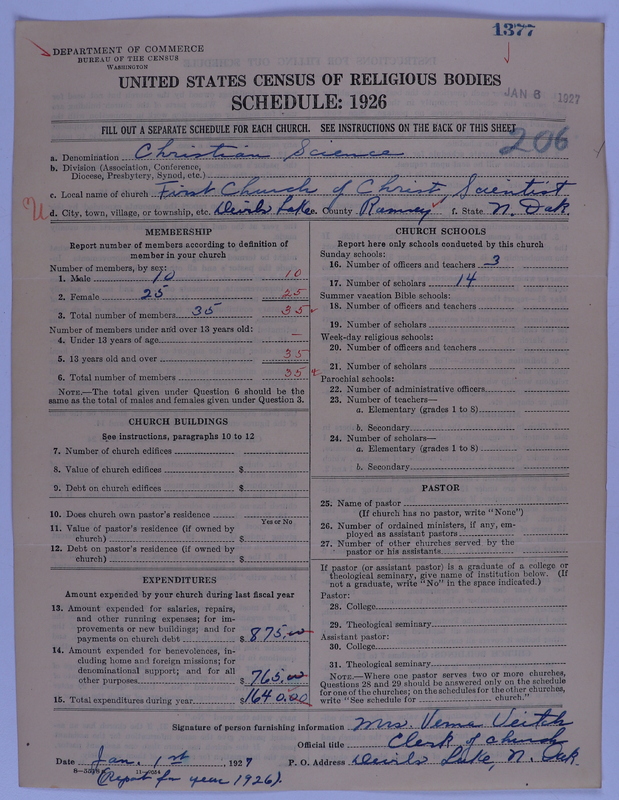 1377
DEPARTMENT OF COMMERCE
BUREAU OF THE CENSUS
WASHINGTON
UNITED STATES CENSUS OF RELIGIOUS BODIES
SCHEDULE: 1926
JAN 8 1927
FILL OUT A SEPARATE SCHEDULE FOR EACH CHURCH. SEE INSTRUCTIONS ON THE BACK OF THIS SHEET
206
a. Denomination Christian Science
b. Division (Association, Conference, Diocese, Presbytery, Synod, etc.)
c. Local name of church First Church of Christ, Scientist
U d. City, town, village, or township, etc. Devils Lake e. County Ramsey f. State N. Dak.
MEMBERSHIP
Report number of members according to definition of
member in your church
Number of members, by sex:
1. Male 10 10
2. Female 25 25
3. Total number of members 35 35
Number of members under and over 13 years old:
4. Under 13 years of age —
5. 13 years old and over 35
6. Total number of members 35
NOTE.—The total given under Question 6 should be the
same as the total of males and females given under Question 3.
CHURCH BUILDINGS
See instructions, paragraphs 10 to 12
7. Number of church edifices
8. Value of church edifices $
9. Debt on church edifices $
10. Does church own pastor's residence
Yes or No
11. Value of pastor's residence (if owned by
church) $
12. Debt on pastor's residence (if owned by
church) $
EXPENDITURES
Amount expended by your church during last fiscal year
13. Amount expended for salaries, repairs,
and other running expenses; for im-
provements or new buildings; and for
payments on church debt $ 875.00
14. Amount expended for benevolences, in-
cluding home and foreign missions; for
denominational support; and for all
other purposes $ 765.00
15. Total expenditures during year $ 1640.00
CHURCH SCHOOLS
Report here only schools conducted by this church
Sunday schools:
16. Number of officers and teachers 3
17. Number of scholars 14
Summer vacation Bible schools:
18. Number of officers and teachers
19. Number of scholars
Week-day religious schools:
20. Number of officers and teachers
21. Number of scholars
Parochial schools:
22. Number of administrative officers
23. Number of teachers—
a. Elementary (grades 1 to 8)
b. Secondary
24. Number of scholars—
a. Elementary (grades 1 to 8)
b. Secondary
PASTOR
25. Name of pastor
(If church has no pastor, write "None")
26. Number of ordained ministers, if any, em-
ployed as assistant pastors
27. Number of other churches served by the
pastor or his assistants
If pastor (or assistant pastor) is a graduate of a college or
theological seminary, give name of institution below. (If
not a graduate, write "No" in the space indicated.)
Pastor:
28. College
29. Theological seminary
Assistant pastor:
30. College
31. Theological seminary
NOTE.—Where one pastor serves two or more churches,
Questions 28 and 29 should be answered only on the schedule
for one of the churches; on the schedules for the other churches,
write "See schedule for church."
Signature of person furnishing information Mrs. Verna Veitch
Official title Clerk of church
Date Jan. 1st 1927 P. O. Address Devils Lake, N. Dak.
(Report for year 1926).